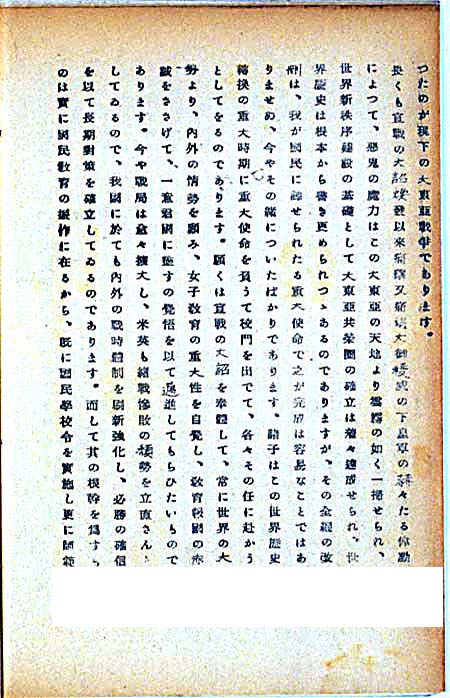 つたのが現下の大東亞戰爭であります。
畏くも宣戰の大詔渙發以來 大御稜威の下皇軍の赫々たる偉勳
によつて、惡鬼の魔力はこの大東亞の天地より雲霧の如く一掃せられ、
世界新秩序建設の基礎として大東亞共榮圈の確立は着々達成せられ、世
界歷史は根本から書き更められつゝあるのでありますが、その全貌の改
は、我が國民に課せられたる重大使命で之が完成は容易なことではあ
りませぬ、今やその緖についたばかりであります。諸子はこの世界歷史
轉換の重大時期に重大使命を負うて校門を出でて、各々その任に赴かう
としてをるのであります。願くは宣戰の大詔を奉體して、常に世界の大
勢より、內外の情勢を顧み、女子敎育の重大性を自覺し、敎育報國の赤
誠をささげて、一意君國に盡すの覺悟を以て邁進してもらひたいもので
あります。今や戰局は愈々擴大し、米英も緖戰慘敗の頽勢を立直さんと
してゐるので、我國に於ても內外の戰時體制を刷新强化し、必勝の確信
を以て長期對策を確立してゐるのであります。而して其の根幹を爲すも
のは實に國民敎育の振作に在るから、旣に國民學校令を實施し更に師範